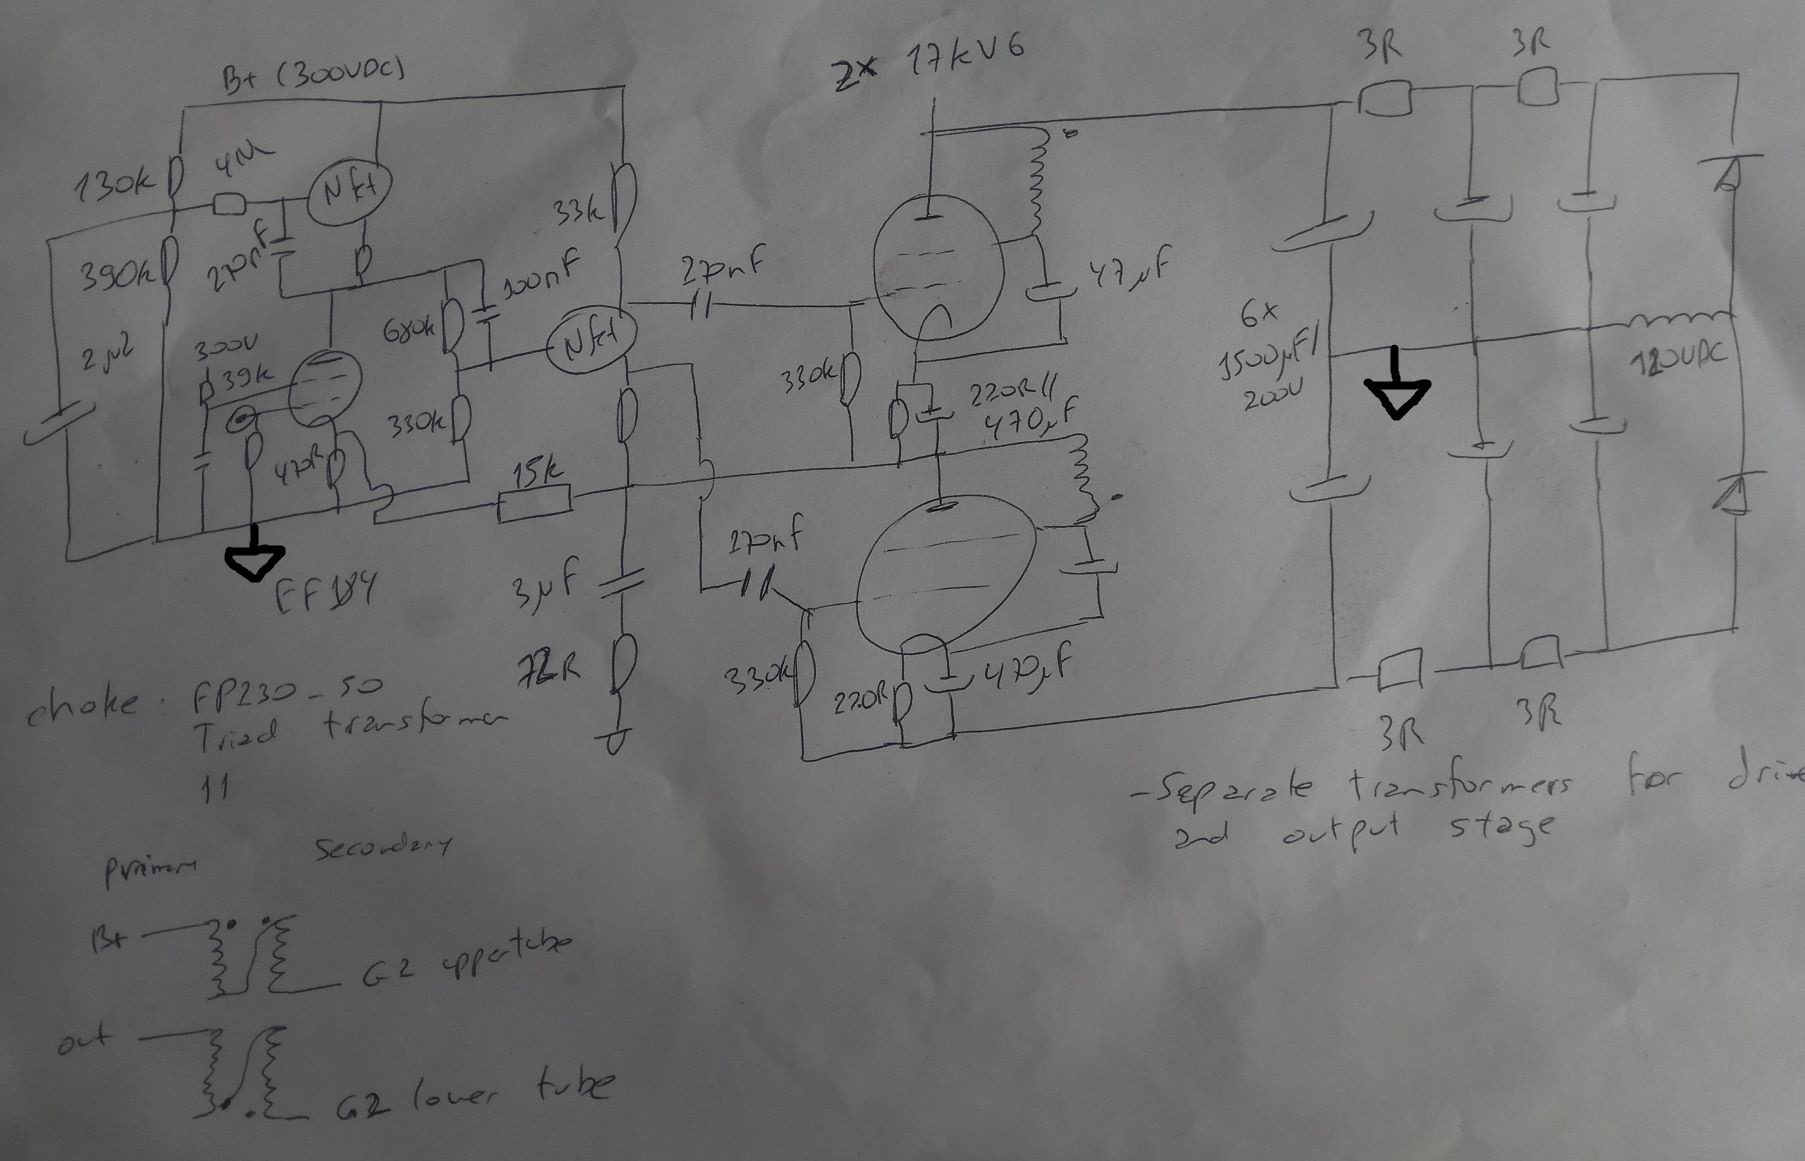 B+ (300VDC)
2x 17kV6
3R
3R
130k
4M
Nfet
33k
390k
270nF
100nF
270nF
47µF
2µ2
300V
39k
680k
Nfet
330k
220R//
470µF
6x
1500µF/
200V
120VDC
470R
330k
15k
EF184
3µF
270nF
72R
330k
220R
470µF
3R
3R
choke: FP230-50
Triad transformer
11
-Separate transformers for drive
and output stage
primary
secondary
B+
G2 upper tube
out
G2 lower tube